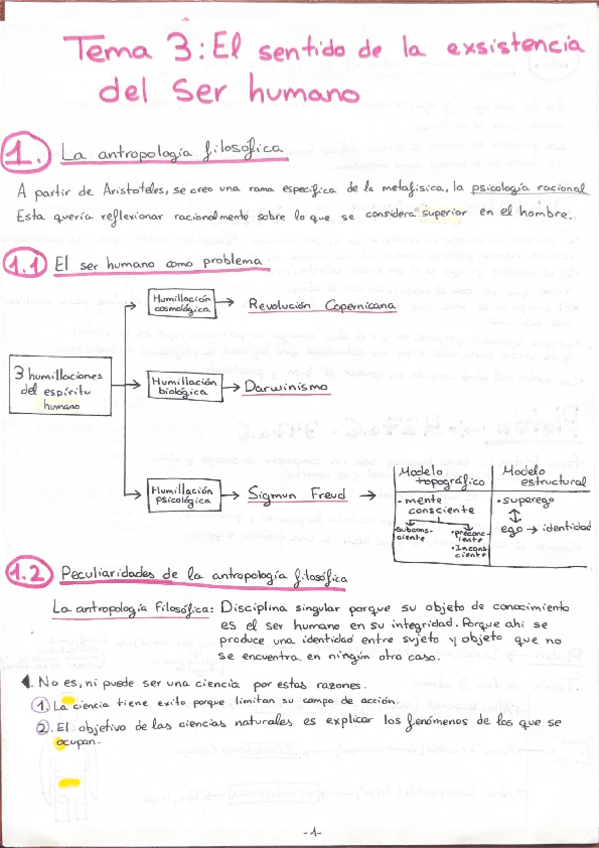 Tema 3: El sentido de la exsistencia
del ser humano
1. La antropología filosófica
A partir de Aristoteles, se crea una rama especifica de la metafisica, la psicología racional
Esta quería reflexionar racionalmente sobre lo que se considera superior en el hombre.
1.1 El ser humano como problema
3 humillaciones
del espíritu
humano
Humillación
cosmológica
Revolución Copernicana
Humillación
biológica
Darwinismo
Humillación
psicológica
Sigmun Freud
Modelo
topográfico
• mente
consciente
subcons-
ciente
• precons-
ciente
• Incons-
ciente
Modelo
estructural
• superego
ego → identidad
1.2 Peculiaridades de la antropología filosófica
La antropología Filosófica: Disciplina singular porque su objeto de conocimiento
es el ser humano en su integridad. Porque ahí se
produce una identidad entre sujeto y objeto que no
se encuentra en ningún otro caso.
1. No es, ni puede ser una ciencia por estas razones.
1. La ciencia tiene exito porque limitan su campo de acción.
2. El objetivo de las ciencias naturales es explicar los fenómenos de los que se
ocupan.
-1-